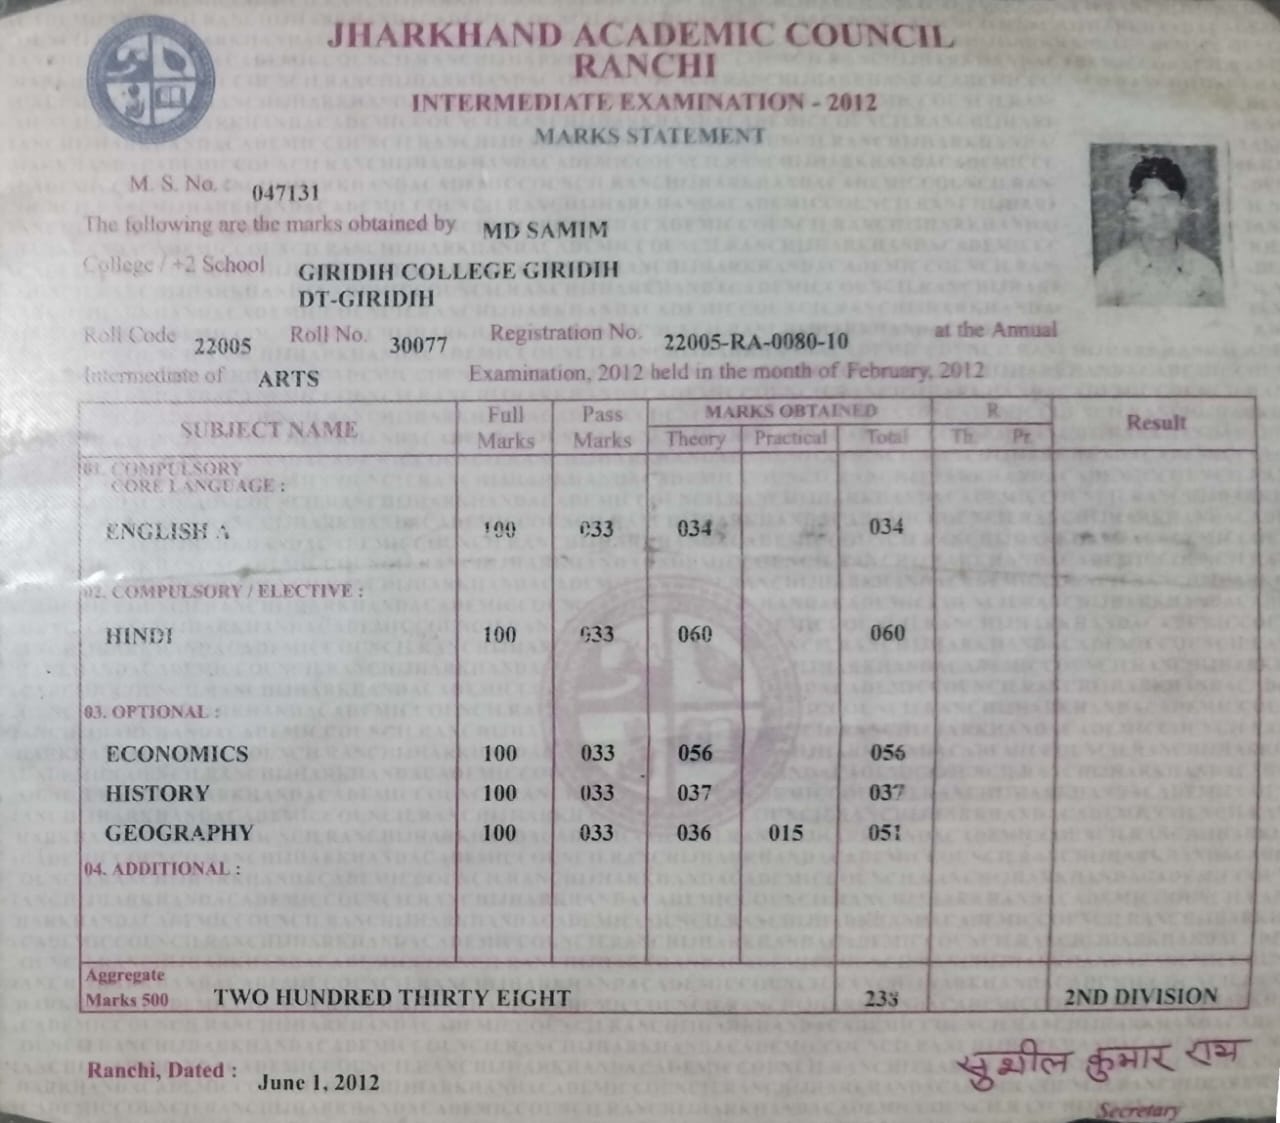 JHARKHAND ACADEMIC COUNCIL
RANCHI
INTERMEDIATE EXAMINATION - 2012
MARKS STATEMENT
M. S. No. : 047131
The following are the marks obtained by MD SAMIM
College / +2 School GIRIDIH COLLEGE GIRIDIH
DT-GIRIDIH
Roll Code 22005 Roll No. 30077 Registration No. 22005-RA-0080-10 at the Annual
Intermediate of ARTS Examination, 2012 held in the month of February, 2012
SUBJECT NAME Full Marks Pass Marks MARKS OBTAINED R Result
Theory Practical Total Th. Pr.
01. COMPULSORY
CORE LANGUAGE :
ENGLISH A 100 033 034 034
02. COMPULSORY / ELECTIVE :
HINDI 100 033 060 060
03. OPTIONAL :
ECONOMICS 100 033 056 056
HISTORY 100 033 037 037
GEOGRAPHY 100 033 036 015 051
04. ADDITIONAL :
Aggregate
Marks 500 TWO HUNDRED THIRTY EIGHT 238 2ND DIVISION
Ranchi, Dated : June 1, 2012
सुशील कुमार राय
Secretary